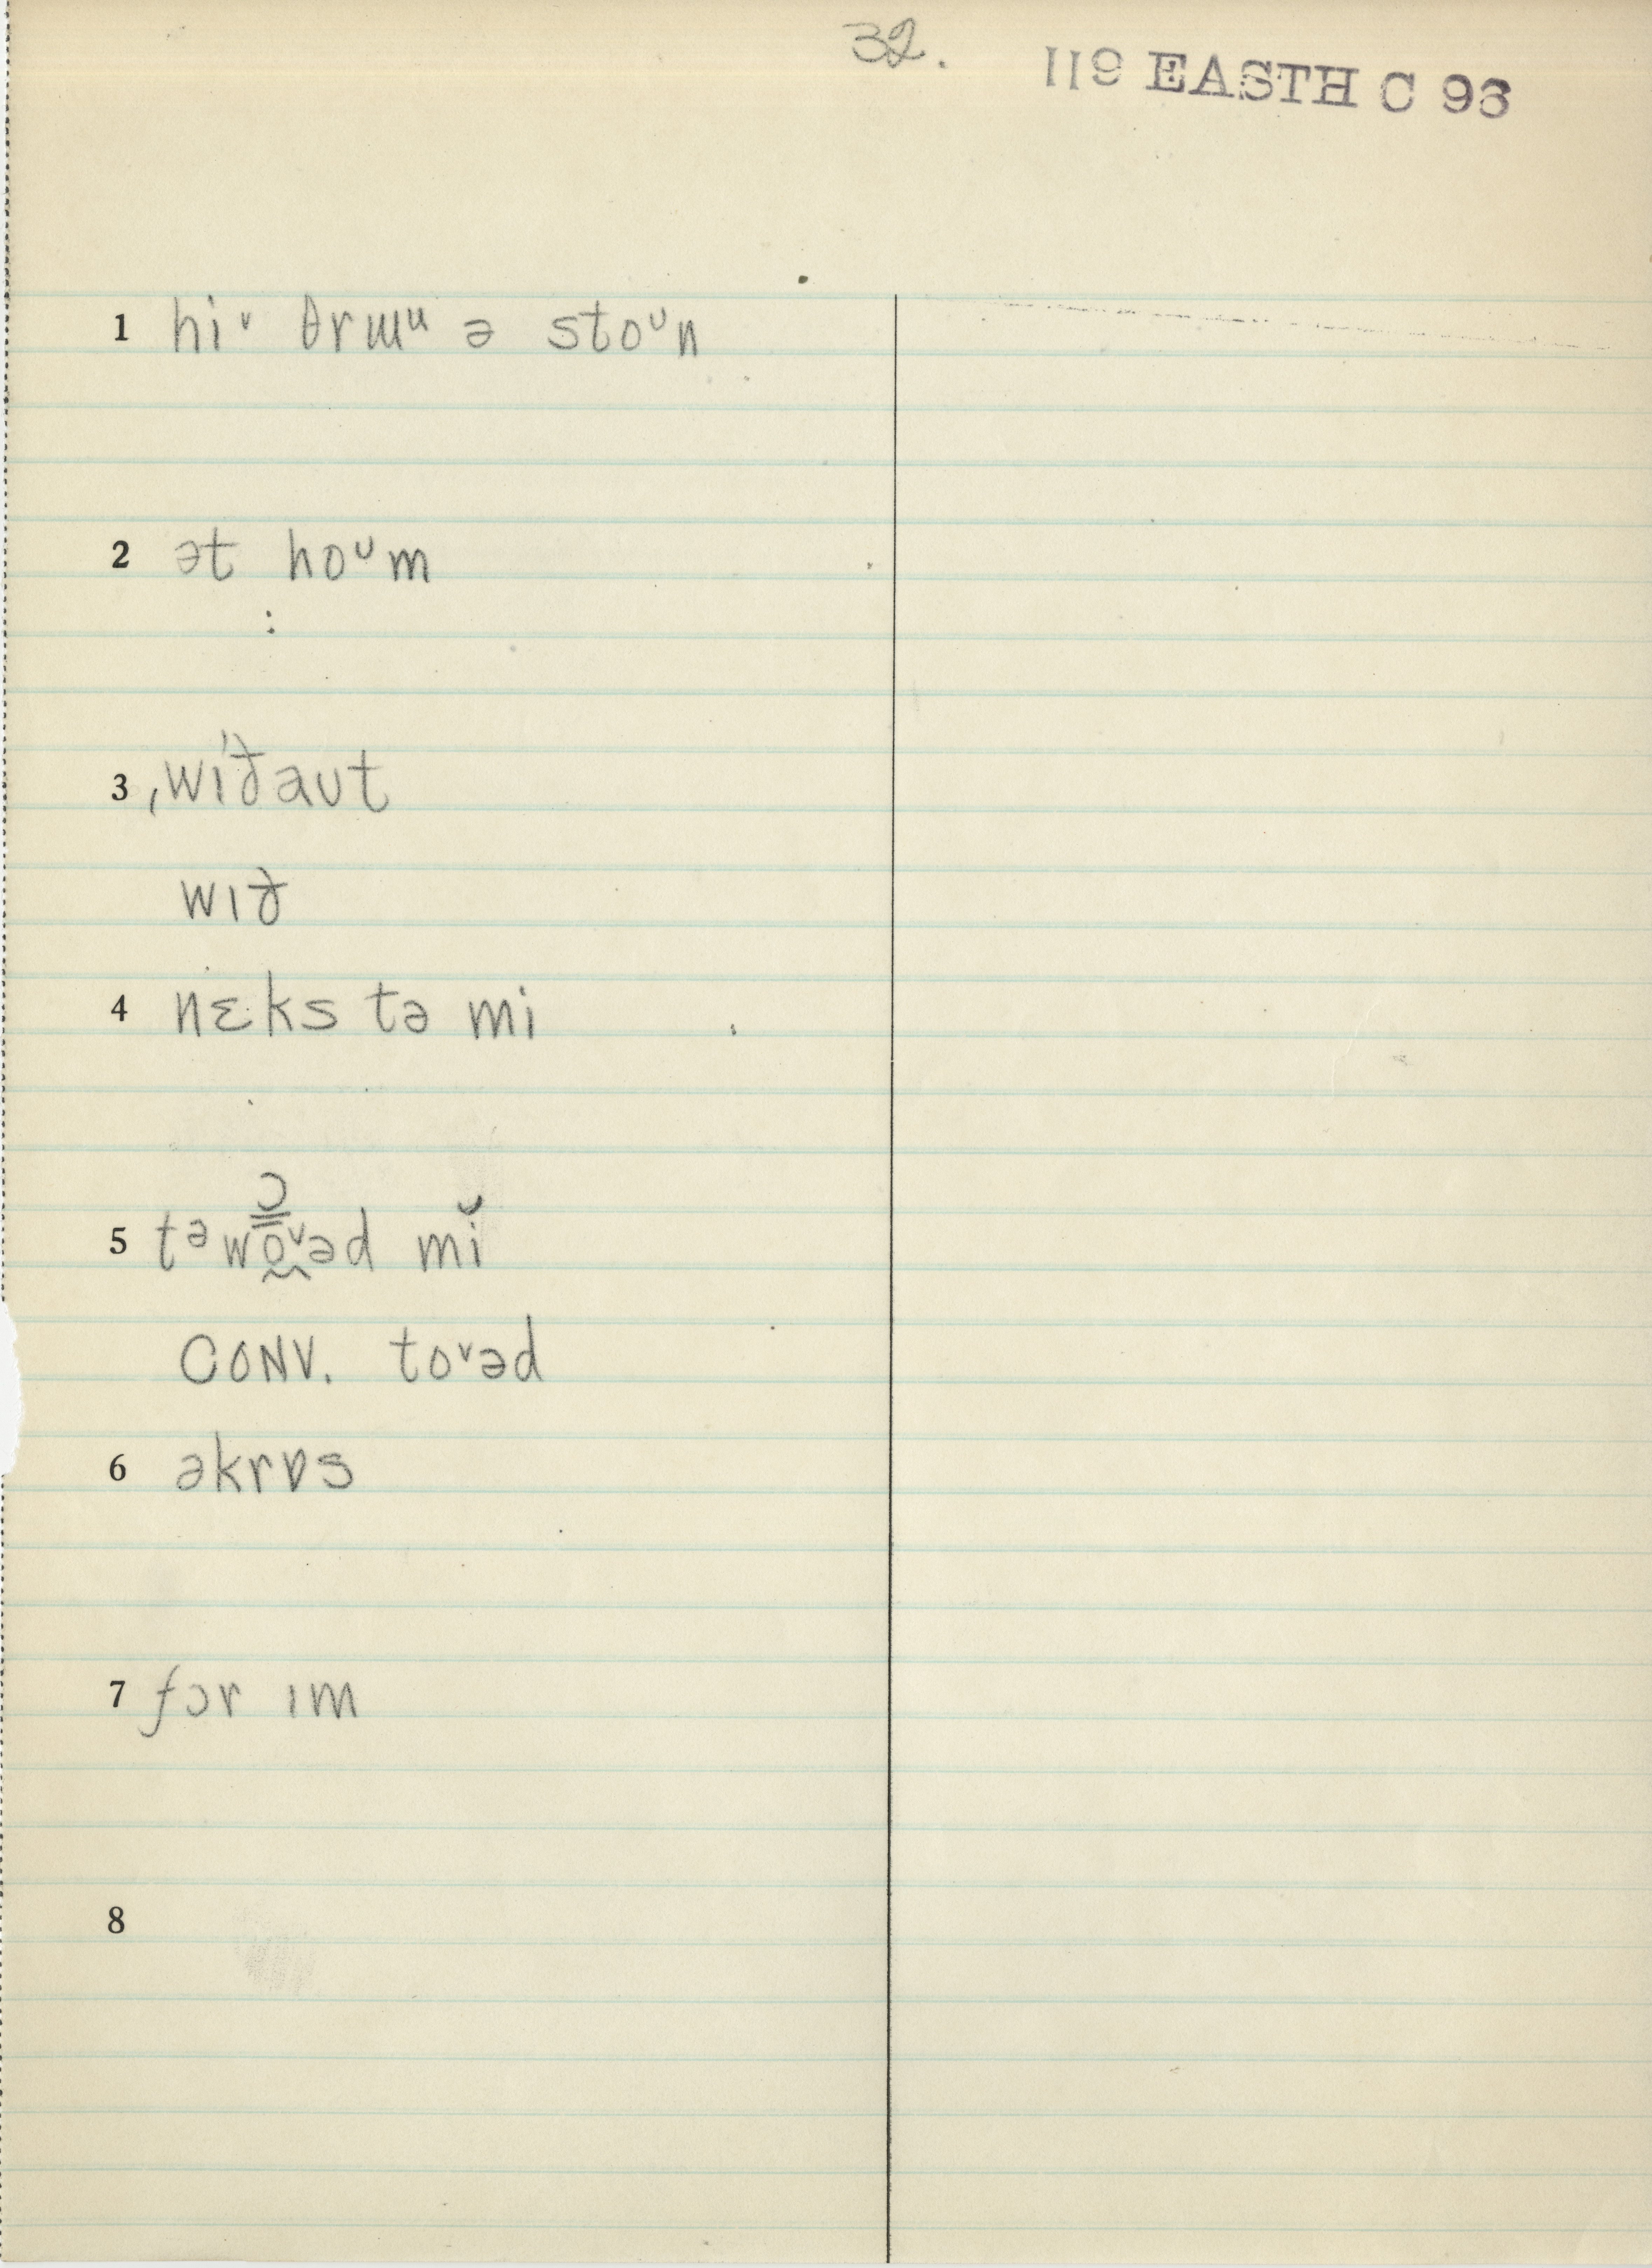 32.
119 EASTH C 93
1 hiᵛ θrɯᵘ ə stoᶷn
2 ət hoᶷm
3 ˌwiˈðaʊt
wɪð
4 nɛks tə mi
ɔ
5 tᵊwo̰ᵛəd mĭ
CONV. toᵛəd
6 əkrɒs
7 fɔr ɪm
8